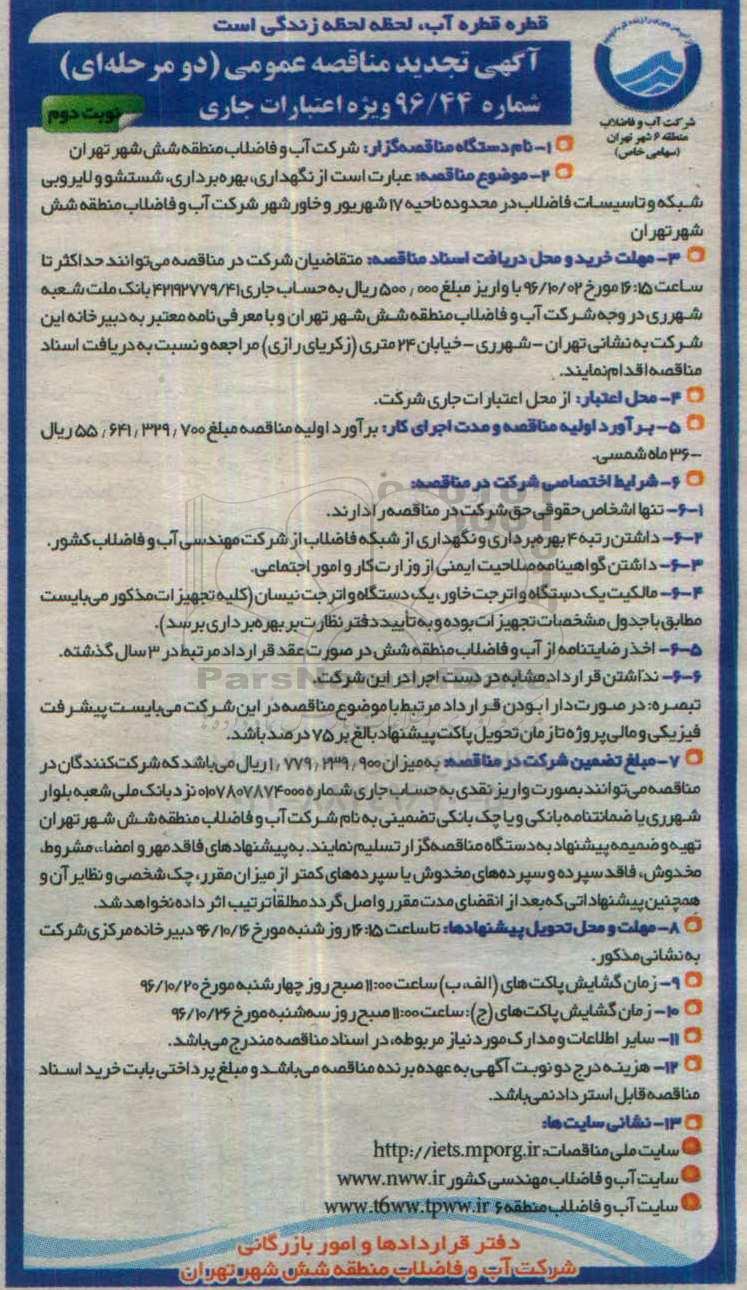 قطره قطره آب، لحظه لحظه زندگی است
آگهی تجدید مناقصه عمومی (دو مرحله‌ای)
شماره ۹۶/۴۴ ویژه اعتبارات جاری
نوبت دوم
شرکت آب و فاضلاب
منطقه ۶ شهر تهران
(سهامی خاص)
۱- نام دستگاه مناقصه‌گزار: شرکت آب و فاضلاب منطقه شش شهر تهران
۲- موضوع مناقصه: عبارت است از نگهداری، بهره‌برداری، شستشو و لایروبی
شبکه و تاسیسات فاضلاب در محدوده ناحیه ۱۷ شهریور و خاورشهر شرکت آب و فاضلاب منطقه شش
شهر تهران
۳- مهلت خرید و محل دریافت اسناد مناقصه: متقاضیان شرکت در مناقصه می‌توانند حداکثر تا
ساعت ۱۶:۱۵ مورخ ۹۶/۱۰/۰۲ با واریز مبلغ ۵۰۰٫۰۰۰ ریال به حساب جاری ۴۲۱۹۲۷۷۹/۴۱ بانک ملت شعبه
شهرری در وجه شرکت آب و فاضلاب منطقه شش شهر تهران و با معرفی نامه معتبر به دبیرخانه این
شرکت به نشانی تهران – شهرری – خیابان ۲۴ متری (زکریای رازی) مراجعه و نسبت به دریافت اسناد
مناقصه اقدام نمایند.
۴- محل اعتبار: از محل اعتبارات جاری شرکت.
۵- برآورد اولیه مناقصه و مدت اجرای کار: برآورد اولیه مناقصه مبلغ ۵۵٫۶۴۱٫۳۲۹٫۷۰۰ ریال
-۳۶ ماه شمسی.
۶- شرایط اختصاصی شرکت در مناقصه:
۶-۱- تنها اشخاص حقوقی حق شرکت در مناقصه را دارند.
۶-۲- داشتن رتبه ۴ بهره‌برداری و نگهداری از شبکه فاضلاب از شرکت مهندسی آب و فاضلاب کشور.
۶-۳- داشتن گواهینامه صلاحیت ایمنی از وزارت کار و امور اجتماعی.
۶-۴- مالکیت یک دستگاه واترجت خاور، یک دستگاه واترجت نیسان (کلیه تجهیزات مذکور می‌بایست
مطابق با جدول مشخصات تجهیزات بوده و به تأیید دفتر نظارت بر بهره‌برداری برسد).
۶-۵- اخذ رضایتنامه از آب و فاضلاب منطقه شش در صورت عقد قرارداد مرتبط در ۳ سال گذشته.
۶-۶- نداشتن قرارداد مشابه در دست اجرا در این شرکت.
تبصره: در صورت دارا بودن قرارداد مرتبط با موضوع مناقصه در این شرکت می‌بایست پیشرفت
فیزیکی و مالی پروژه تا زمان تحویل پاکت پیشنهاد بالغ بر ۷۵ درصد باشد.
۷- مبلغ تضمین شرکت در مناقصه: به میزان ۱٫۷۷۹٫۲۳۹٫۹۰۰ ریال می‌باشد که شرکت‌کنندگان در
مناقصه می‌توانند بصورت واریز نقدی به حساب جاری شماره ۰۱۰۷۸۰۷۸۷۴۰۰۰ نزد بانک ملی شعبه بلوار
شهرری یا ضمانتنامه بانکی و یا چک بانکی تضمینی به نام شرکت آب و فاضلاب منطقه شش شهر تهران
تهیه و ضمیمه پیشنهاد به دستگاه مناقصه‌گزار تسلیم نمایند. به پیشنهادهای فاقد مهر و امضاء، مشروط،
مخدوش، فاقد سپرده و سپرده‌های مخدوش یا سپرده‌های کمتر از میزان مقرر، چک شخصی و نظایر آن و
همچنین پیشنهاداتی که بعد از انقضای مدت مقرر واصل گردد مطلقاً ترتیب اثر داده نخواهد شد.
۸- مهلت و محل تحویل پیشنهادها: تا ساعت ۱۶:۱۵ روز شنبه مورخ ۹۶/۱۰/۱۶ دبیرخانه مرکزی شرکت
به نشانی مذکور.
۹- زمان گشایش پاکت‌های (الف، ب) ساعت ۱۱:۰۰ صبح روز چهارشنبه مورخ ۹۶/۱۰/۲۰
۱۰- زمان گشایش پاکت‌های (ج): ساعت ۱۱:۰۰ صبح روز سه‌شنبه مورخ ۹۶/۱۰/۲۶
۱۱- سایر اطلاعات و مدارک مورد نیاز مربوطه، در اسناد مناقصه مندرج می‌باشد.
۱۲- هزینه درج دو نوبت آگهی به عهده برنده مناقصه می‌باشد و مبلغ پرداختی بابت خرید اسناد
مناقصه قابل استرداد نمی‌باشد.
۱۳- نشانی سایت ها:
سایت ملی مناقصات: http://iets.mporg.ir
سایت آب و فاضلاب مهندسی کشور www.nww.ir
سایت آب و فاضلاب منطقه ۶ www.t6ww.tpww.ir
دفتر قراردادها و امور بازرگانی
شرکت آب و فاضلاب منطقه شش شهر تهران